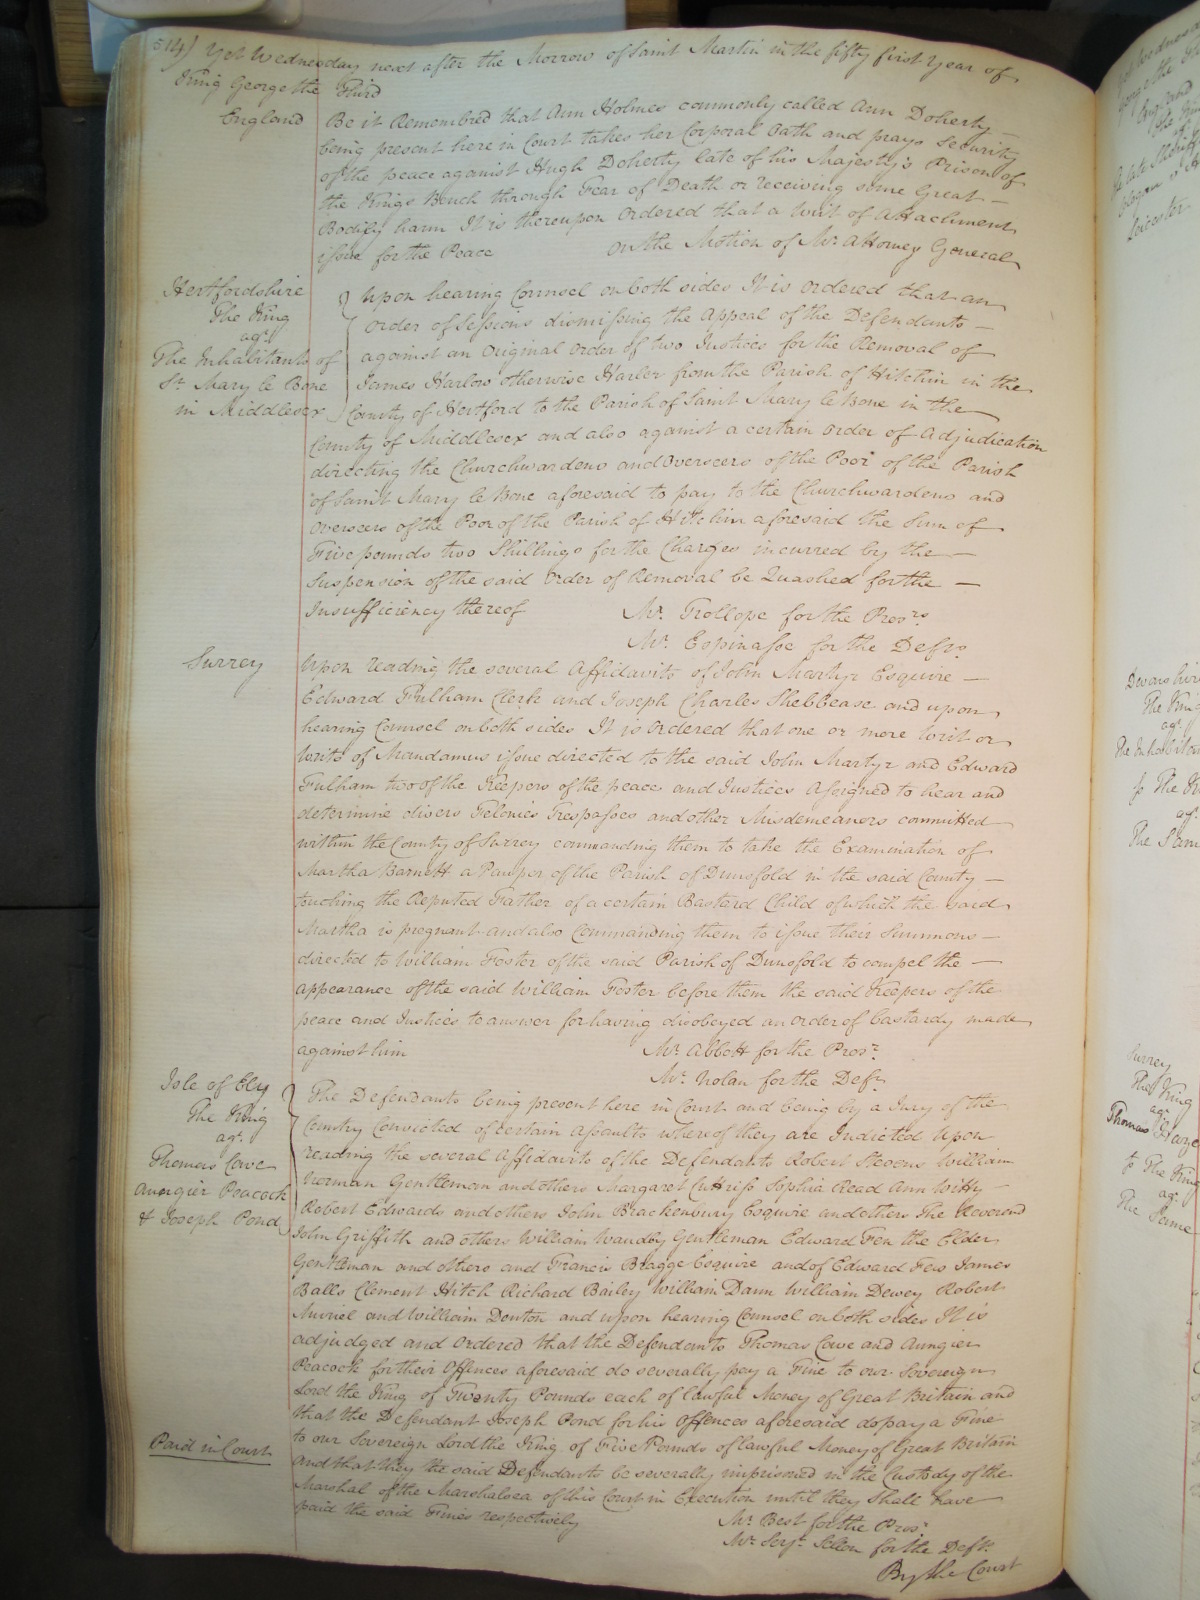 514) Yet Wednesday next after the Morrow of Saint Martin in the fifty first Year of
King George the Third
England
Be it Remembred that Ann Holmes commonly called Ann Doherty
being present here in Court takes her Corporal Oath and prays Security
of the peace against Hugh Doherty late of his Majesty's Prison of
the Kings Bench through Fear of Death or receiving some Great
Bodily harm It is thereupon Ordered that a Writ of Attachment
issue for the Peace On the Motion of Mr. Attorney General
Hertfordshire
The King
agt.
The Inhabitants of
St. Mary le Bone
in Middlesex
Upon hearing Counsel on both sides It is ordered that an
order of Sessions dismissing the Appeal of the Defendants
against an Original Order of two Justices for the Removal of
James Harlow otherwise Harler from the Parish of Hitchin in the
County of Hertford to the Parish of Saint Mary le Bone in the
County of Middlesex and also against a certain order of Adjudication
directing the Churchwardens and Overseers of the Poor of the Parish
of Saint Mary le Bone aforesaid to pay to the Churchwardens and
Overseers of the Poor of the Parish of Hitchin aforesaid the Sum of
Five pounds two Shillings for the Charges incurred by the
Suspension of the said Order of Removal be Quashed for the
Insufficiency thereof Mr. Trollope for the Prosrs
Mr. Espinasse for the Defts.
Surrey
Upon reading the several Affidavits of John Martyr Esquire
Edward Fulham Clerk and Joseph Charles Shebbease and upon
hearing Counsel on both sides It is Ordered that one or more Writ or
Writs of Mandamus issue directed to the said John Martyr and Edward
Fulham two of the Keepers of the peace and Justices Assigned to hear and
determine divers Felonies Trespasses and other Misdemeanors committed
within the County of Surrey commanding them to take the Examination of
Martha Barnett a Pauper of the Parish of Dunsfold in the said County
touching the Reputed Father of a certain Bastard Child of which the said
Martha is pregnant and also Commanding them to issue their Summons
directed to William Foster of the said Parish of Dunsfold to compel the
appearance of the said William Foster before them the said Keepers of the
peace and Justices to answer for having disobeyed an order of bastardy made
against him Mr. Abbott for the Prosr.
Mr. Nolan for the Deft.
Isle of Ely
The King
agt.
Thomas Cave
Aungier Peacock
& Joseph Pond
The Defendants being present here in Court and being by a Jury of the
Country Convicted of certain Assaults whereof they are Indicted Upon
reading the several Affidavits of the Defendants Robert Stevens William
Norman Gentleman and others Margaret Cuttriss Sophia Read Ann Witty
Robert Edwards and others John Brackenbury Esquire and others The Reverend
John Griffith and others William Waudby Gentleman Edward Fen the Elder
Gentleman and others and Francis Bragge Esquire and of Edward Fen James
Balls Clement Hitch Richard Bailey William Dann William Dewey Robert
Muriel and William Denton and upon hearing Counsel on both sides It is
adjudged and Ordered that the Defendants Thomas Cave and Aungier
Peacock for their Offences aforesaid do severally pay a Fine to our Sovereign
Lord the King of Twenty Pounds each of lawful Money of Great Britain and
that the Defendant Joseph Pond for his Offences aforesaid do pay a Fine
to our Sovereign Lord the King of Five Pounds of lawful Money of Great Britain
Paid in Court
and that they the said Defendants be severally imprisoned in the Custody of the
Marshal of the Marshalsea of this Court in Execution until they shall have
paid the said Fines respectively
Mr. Best for the Prosr.
Mr. Serjt. Sellon for the Defts.
By the Court
Surrey
The King
agt.
The King
agt.
The Same